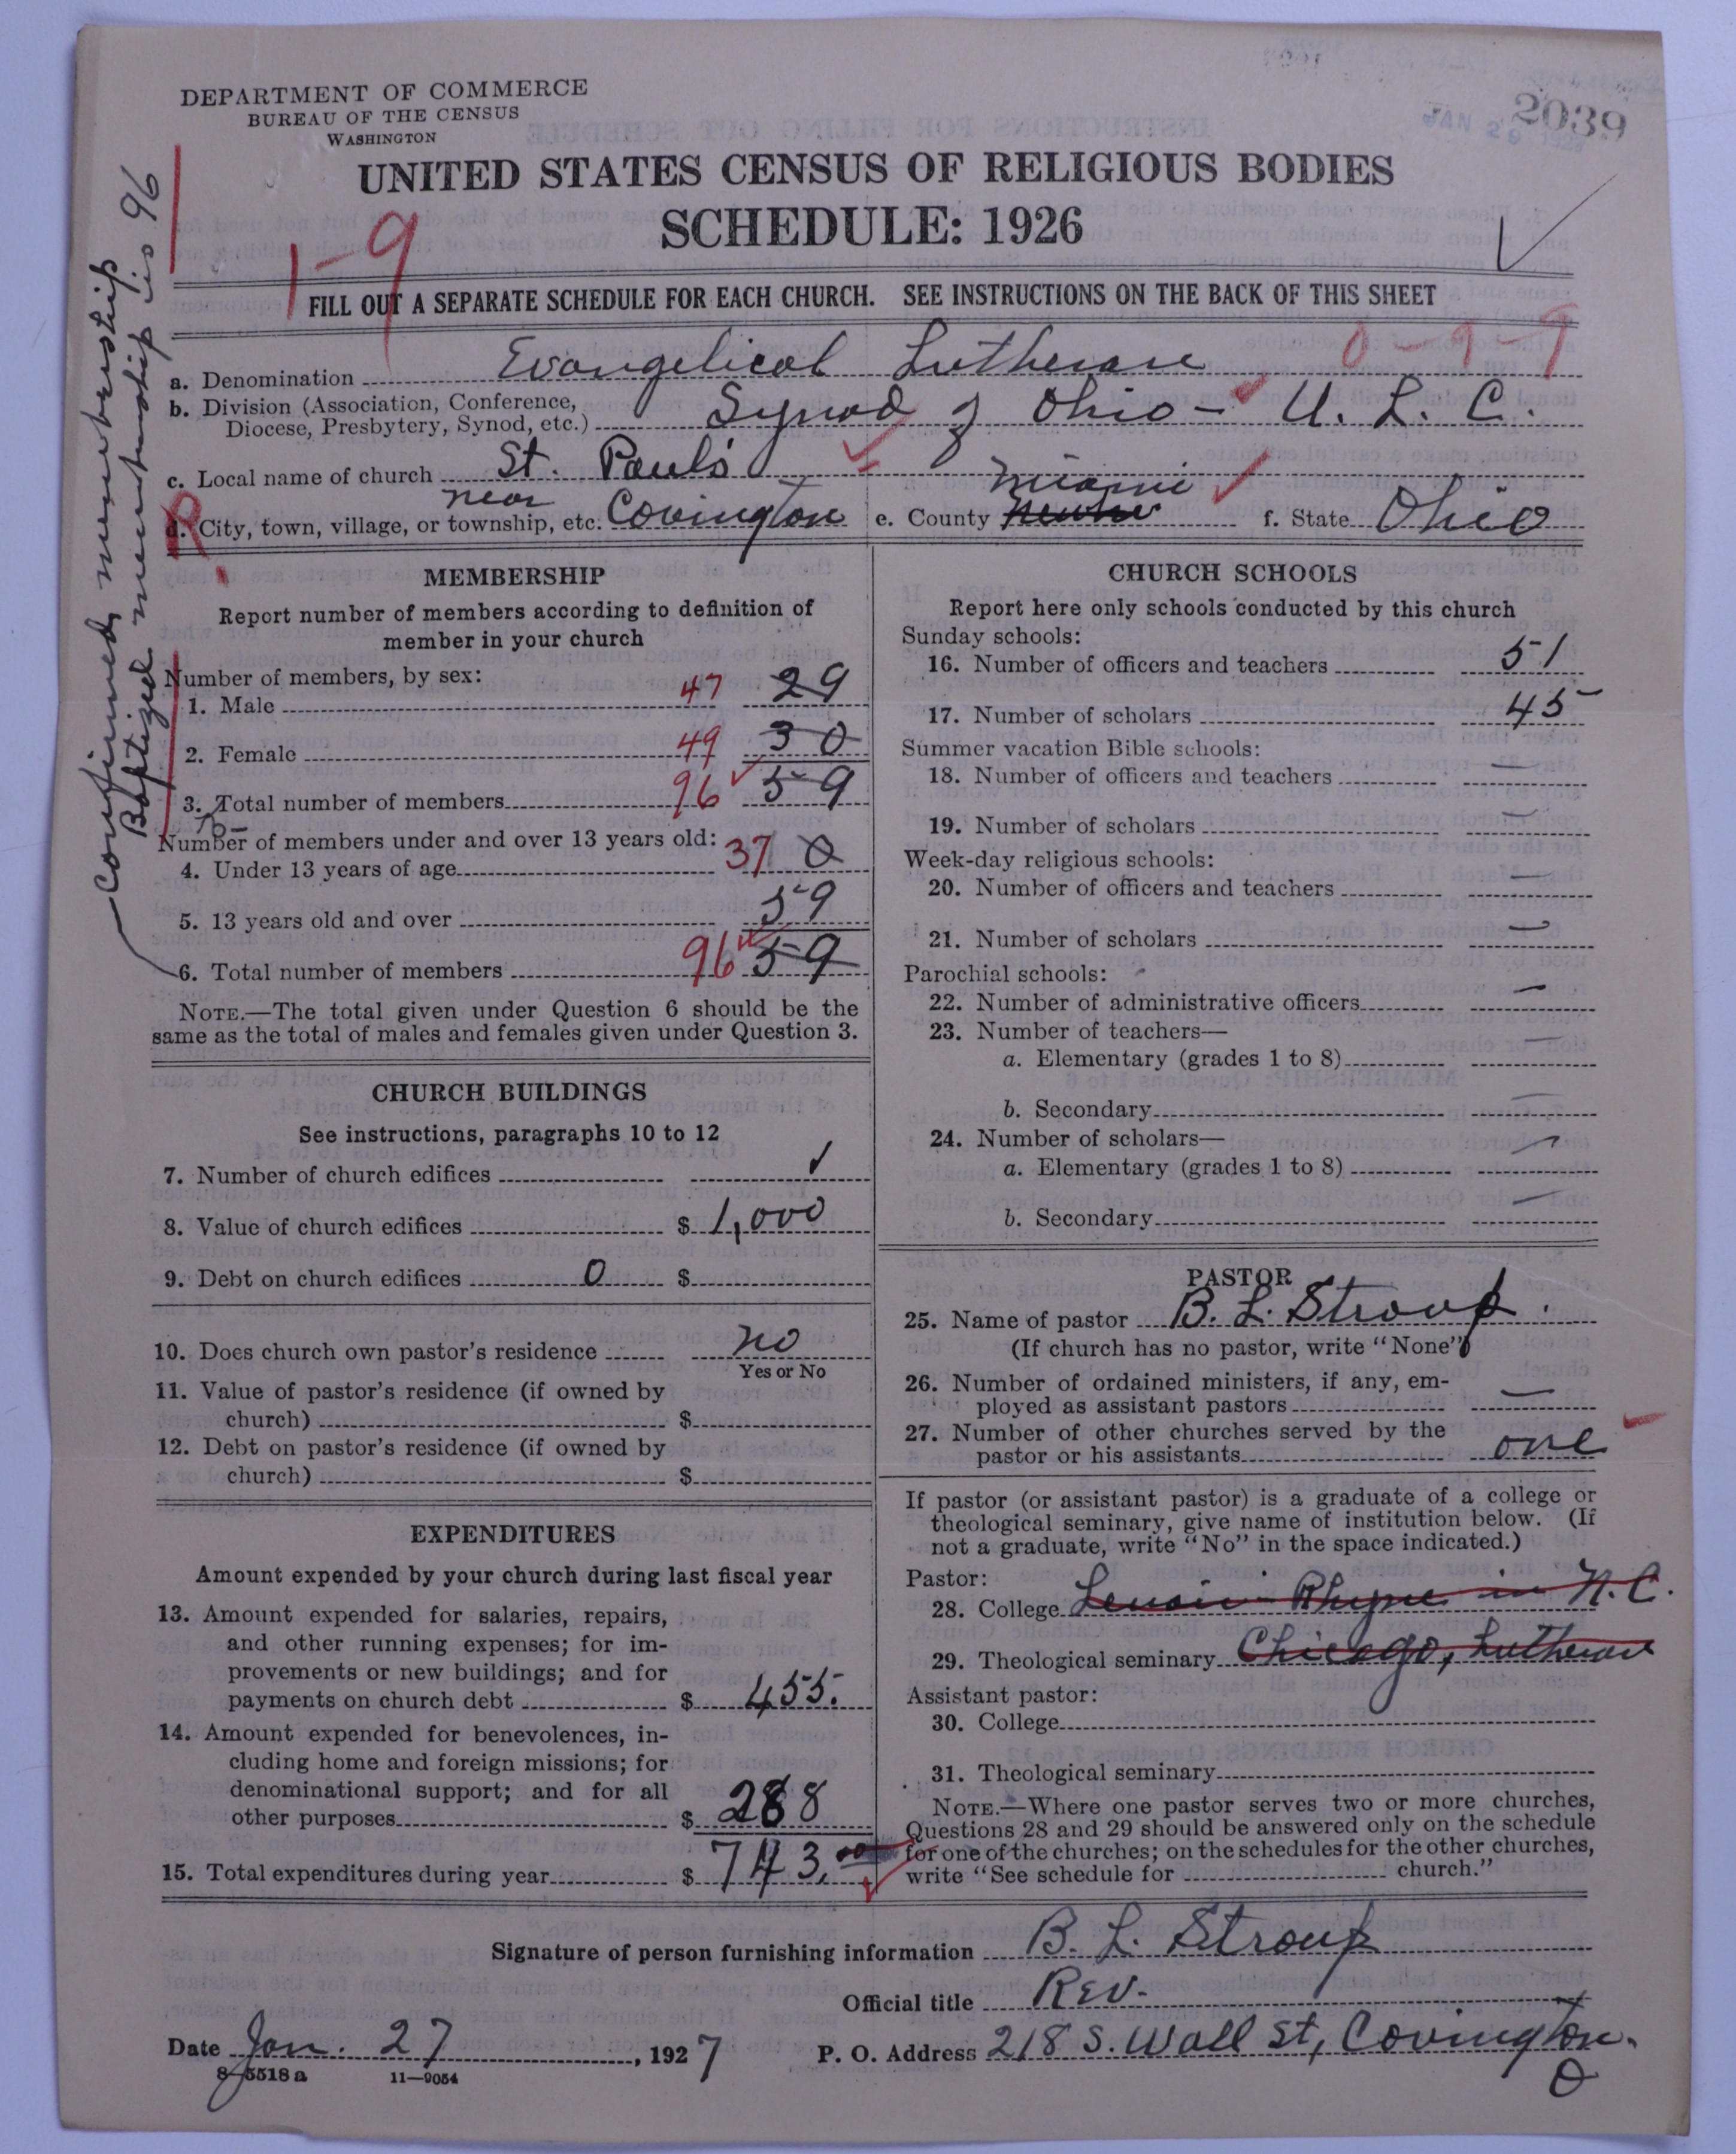 DEPARTMENT OF COMMERCE
BUREAU OF THE CENSUS
WASHINGTON
2039
JAN 29 1927
UNITED STATES CENSUS OF RELIGIOUS BODIES
SCHEDULE: 1926
1-9
FILL OUT A SEPARATE SCHEDULE FOR EACH CHURCH. SEE INSTRUCTIONS ON THE BACK OF THIS SHEET
0-9-9
a. Denomination Evangelical Lutheran
b. Division (Association, Conference, Diocese, Presbytery, Synod, etc.) Synod of Ohio - U. L. C.
c. Local name of church St. Paul's
d. City, town, village, or township, etc. near Covington e. County Miami f. State Ohio
R
Confirmed membership
Baptized membership is 96
MEMBERSHIP
Report number of members according to definition of
member in your church
Number of members, by sex:
1. Male 47 29
2. Female 49 30
3. Total number of members 96 59
Number of members under and over 13 years old:
4. Under 13 years of age 37 0
5. 13 years old and over 59
6. Total number of members 96 59
NOTE.—The total given under Question 6 should be the
same as the total of males and females given under Question 3.
CHURCH BUILDINGS
See instructions, paragraphs 10 to 12
7. Number of church edifices ✓
8. Value of church edifices $ 1,000
9. Debt on church edifices 0 $
10. Does church own pastor's residence no
Yes or No
11. Value of pastor's residence (if owned by
church) $
12. Debt on pastor's residence (if owned by
church) $
EXPENDITURES
Amount expended by your church during last fiscal year
13. Amount expended for salaries, repairs,
and other running expenses; for im-
provements or new buildings; and for
payments on church debt $ 455.
14. Amount expended for benevolences, in-
cluding home and foreign missions; for
denominational support; and for all
other purposes $ 288
15. Total expenditures during year $ 743.00
CHURCH SCHOOLS
Report here only schools conducted by this church
Sunday schools:
16. Number of officers and teachers 51
17. Number of scholars 45
Summer vacation Bible schools:
18. Number of officers and teachers —
19. Number of scholars —
Week-day religious schools:
20. Number of officers and teachers —
21. Number of scholars —
Parochial schools:
22. Number of administrative officers —
23. Number of teachers—
a. Elementary (grades 1 to 8) —
b. Secondary —
24. Number of scholars—
a. Elementary (grades 1 to 8) —
b. Secondary —
PASTOR
25. Name of pastor B. L. Stroup.
(If church has no pastor, write "None")
26. Number of ordained ministers, if any, em-
ployed as assistant pastors —
27. Number of other churches served by the
pastor or his assistants one
If pastor (or assistant pastor) is a graduate of a college or
theological seminary, give name of institution below. (If
not a graduate, write "No" in the space indicated.)
Pastor:
28. College Lenoir-Rhyne in N.C.
29. Theological seminary Chicago, Lutheran
Assistant pastor:
30. College
31. Theological seminary
NOTE.—Where one pastor serves two or more churches,
Questions 28 and 29 should be answered only on the schedule
for one of the churches; on the schedules for the other churches,
write "See schedule for church."
Signature of person furnishing information B. L. Stroup
Official title Rev.
Date Jan. 27, 1927 P. O. Address 218 S. Wall St, Covington.
O
8-5518 a 11—9054